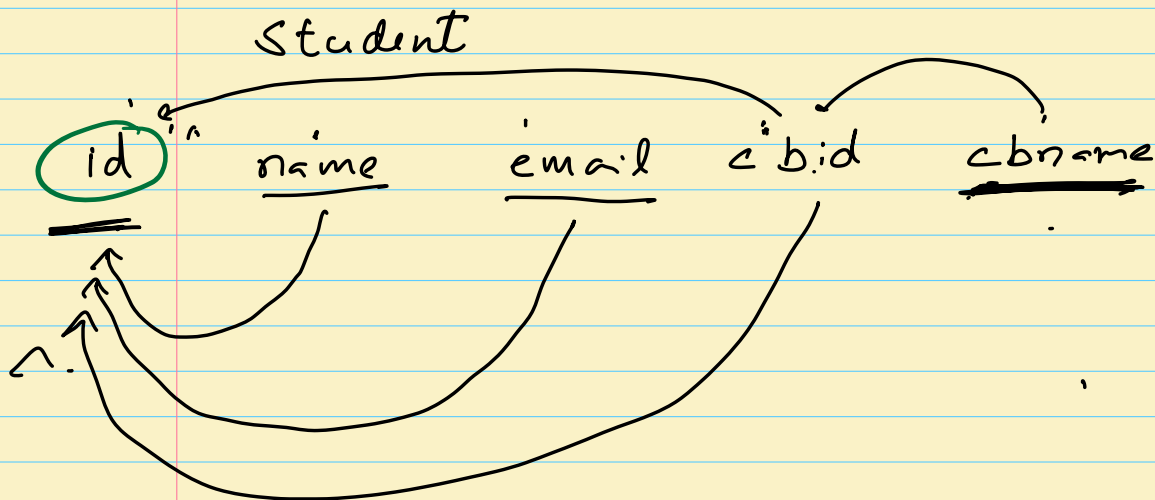 Student
id name email cbid cbname